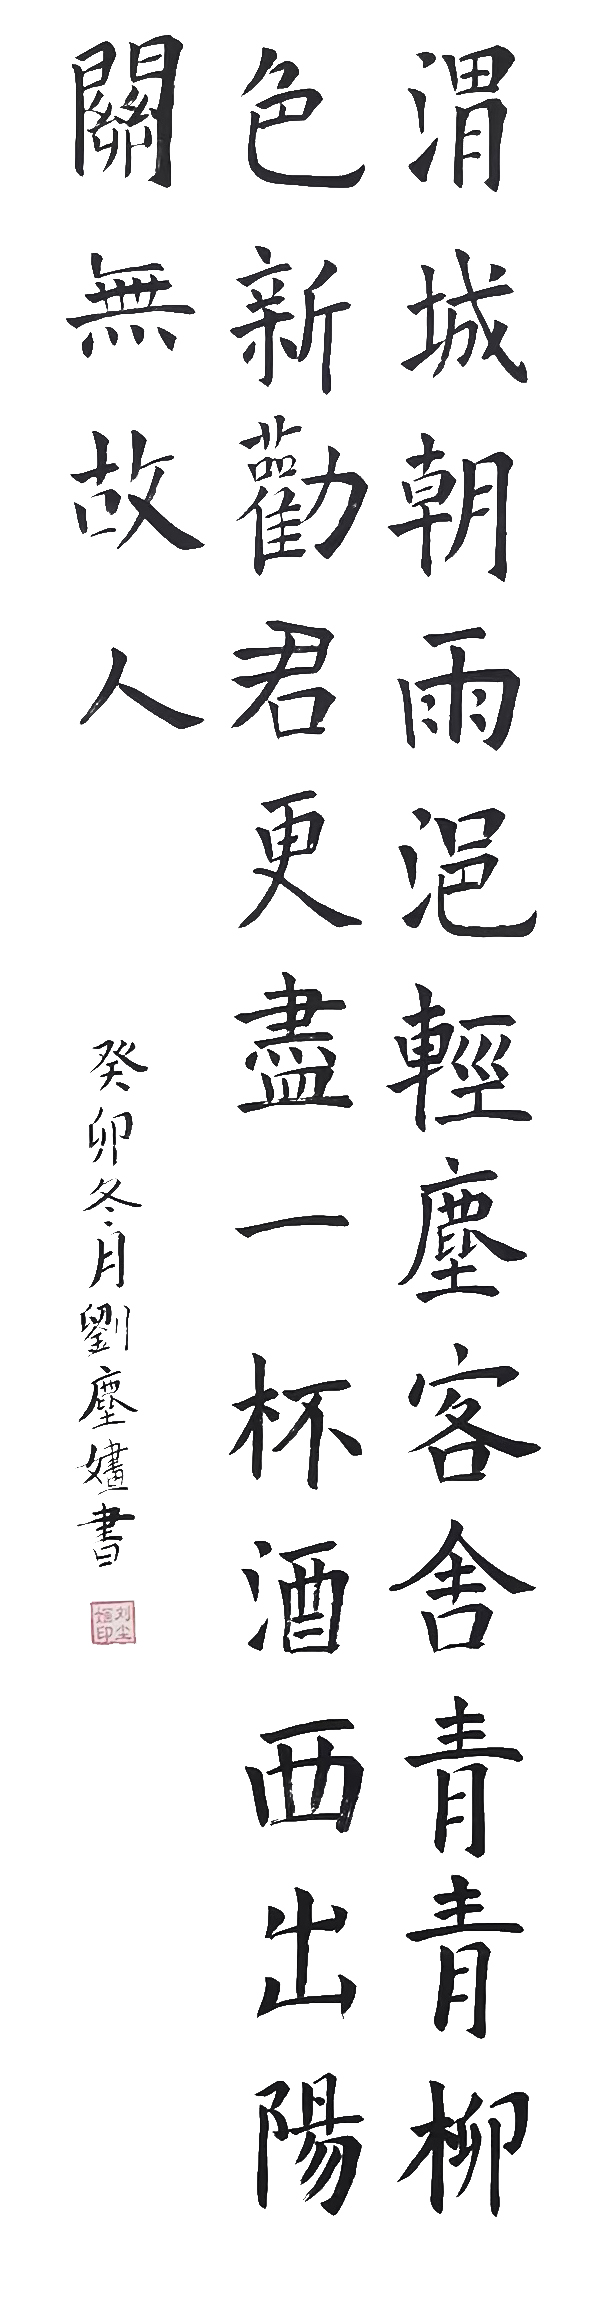 渭城朝雨浥輕塵客舍青青柳
色新勸君更盡一杯酒西出陽
關無故人
癸卯冬月劉塵嫿書
刘尘
婳印